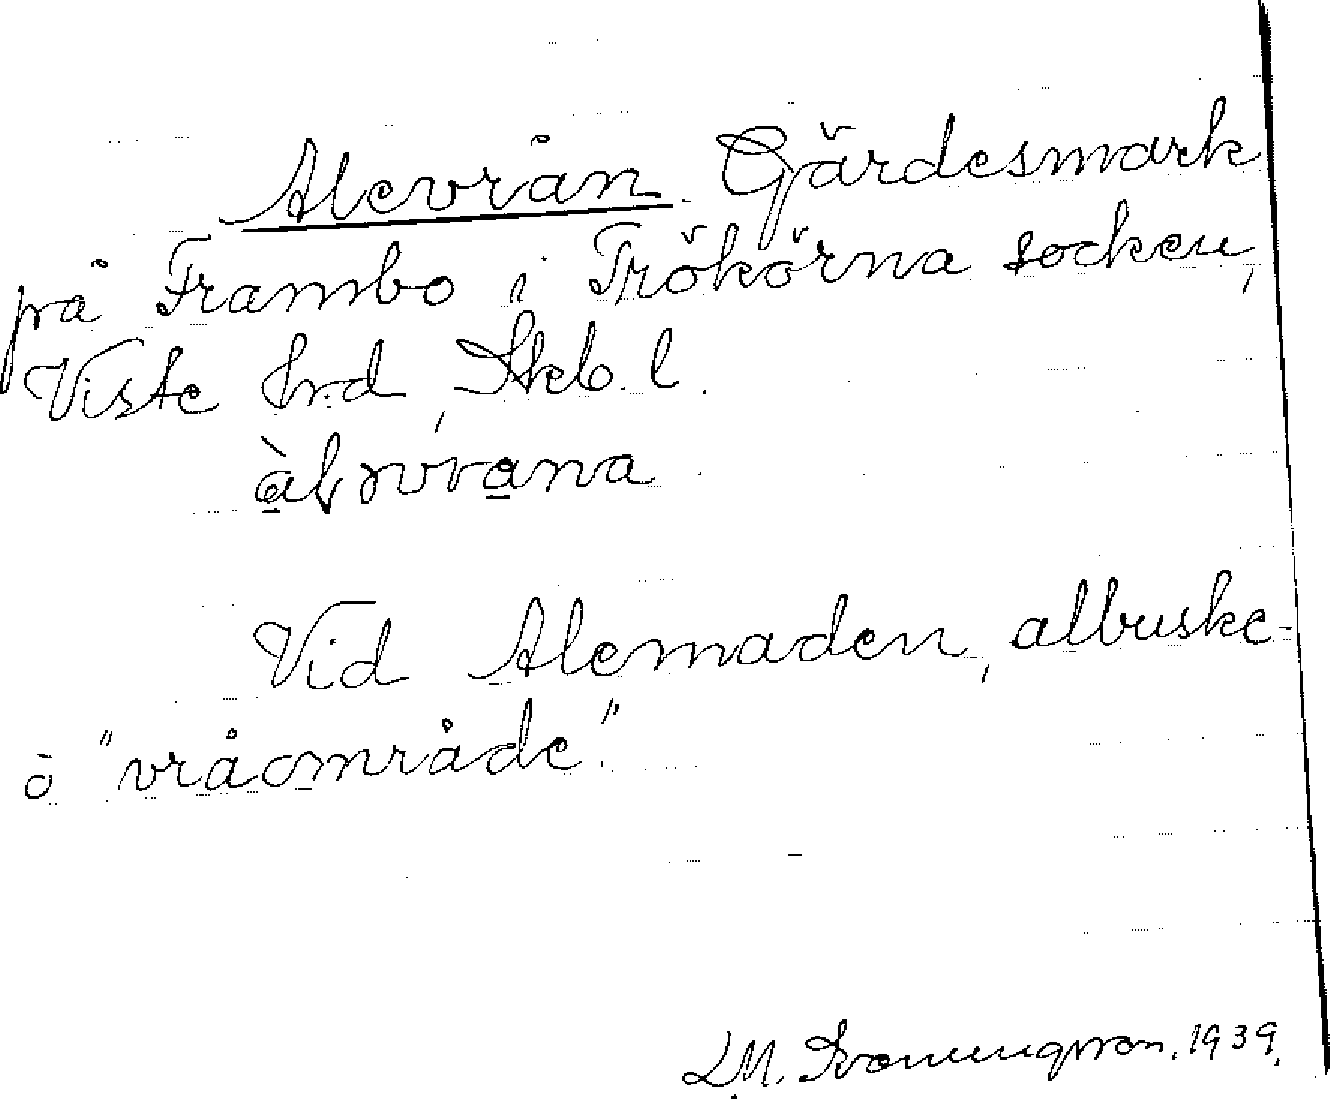 Alevrån Gärdesmark
på Frambo i Trökörna socken,
Viste hrd, Skb. l.
Vid Alemaden, albuske-
o "vråområde".
1939.